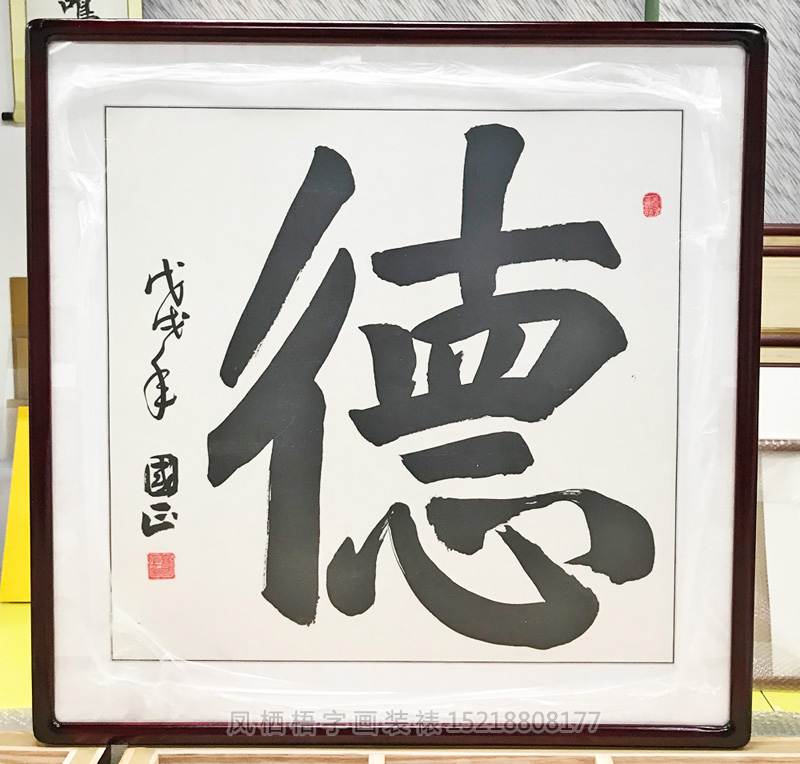 德
戊戌年 國正
凤栖梧字画装裱15218808177